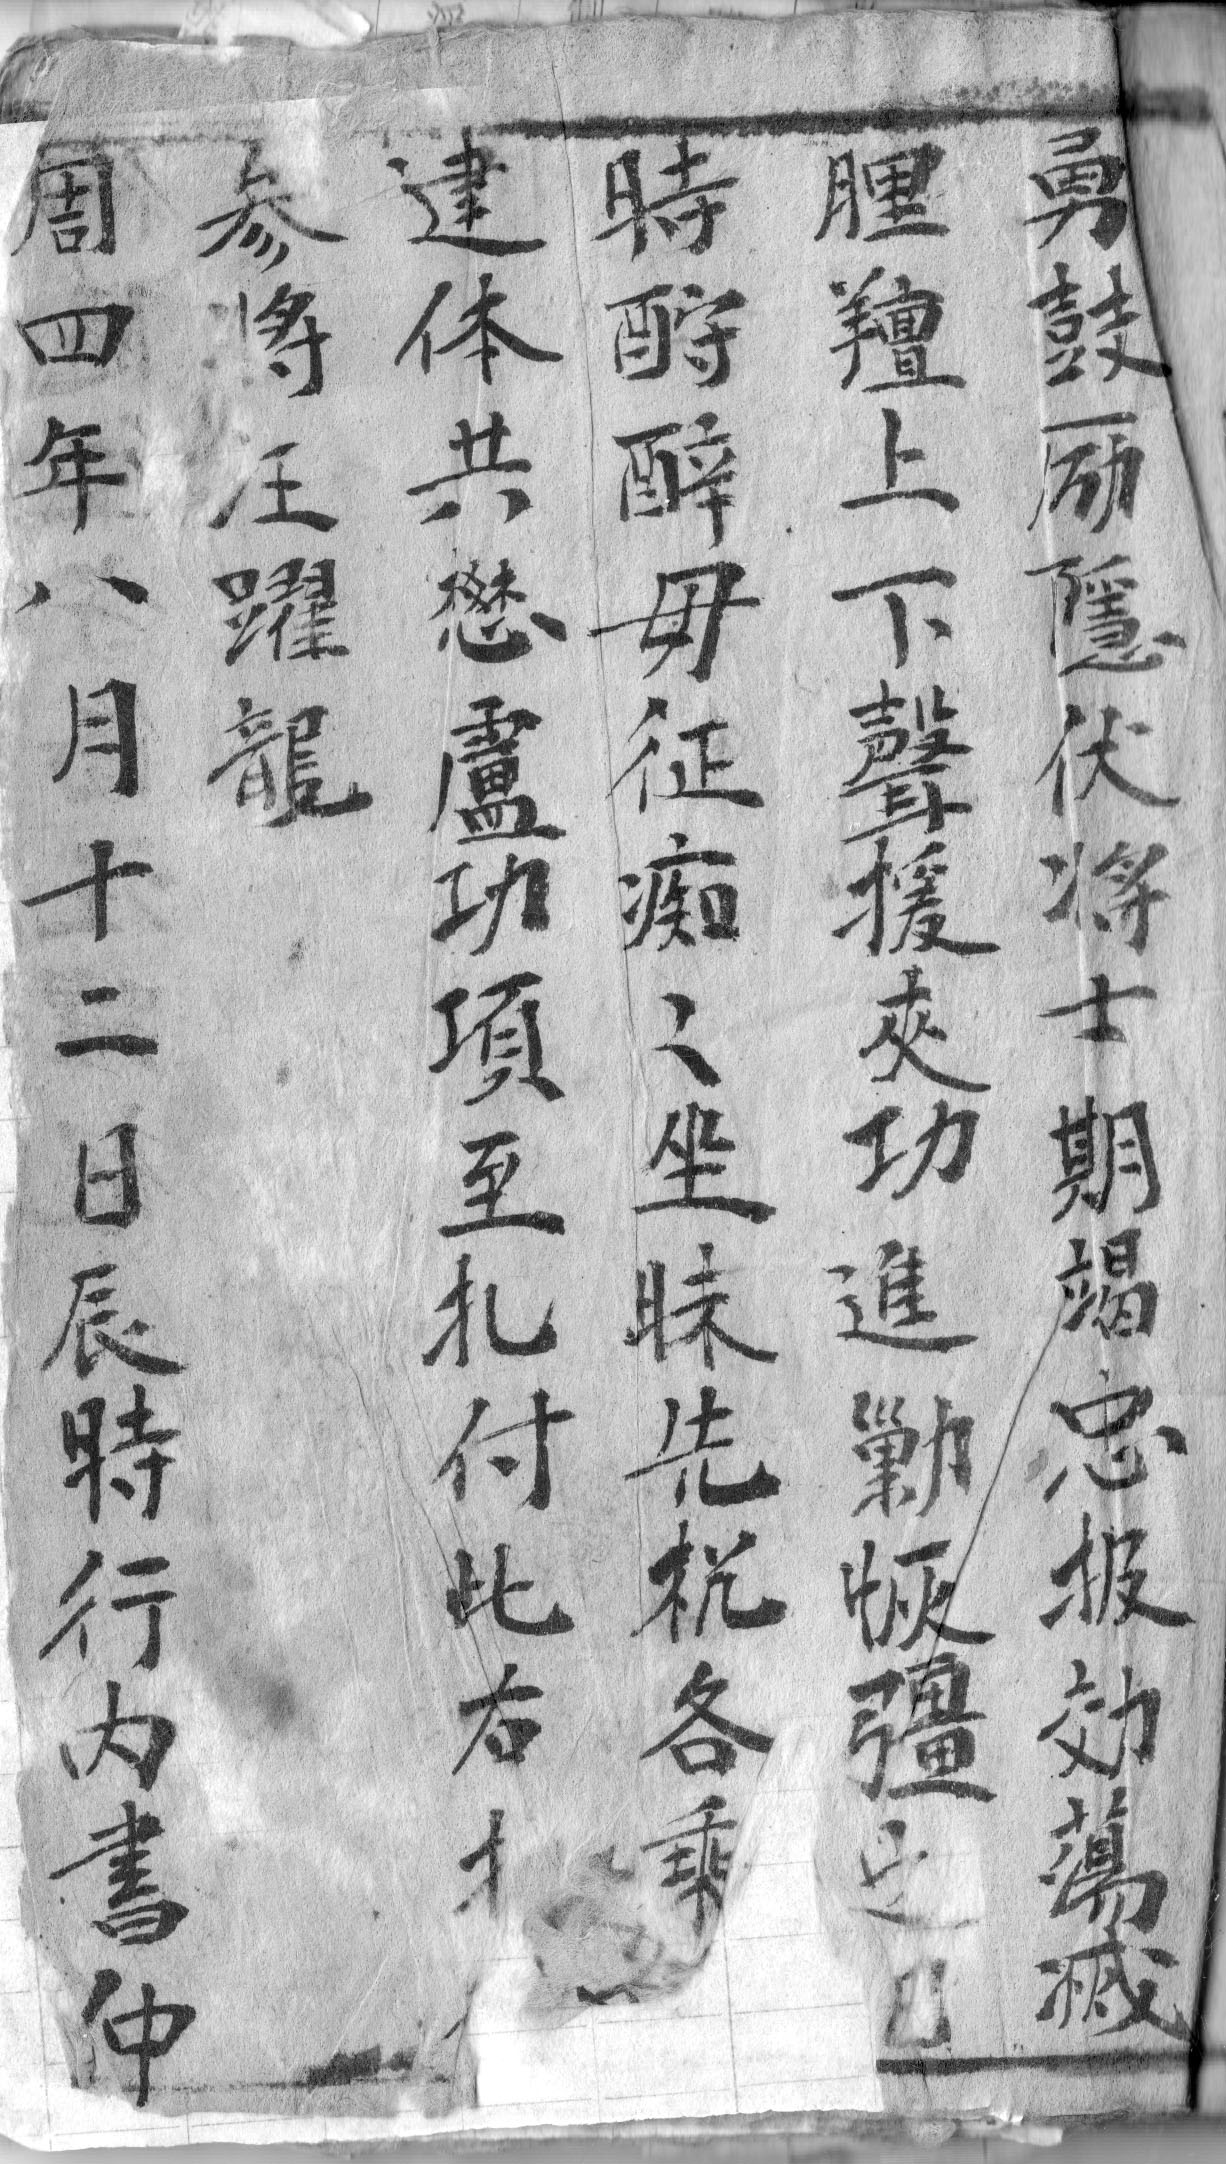 勇鼓励隱伏将士期竭忠报効蕩滅
腥羶上下聲援夾功進勦恢疆之
時酹醉毋征痴〻坐昧先祝各乘
建体共懋盧功項至札付此右
参将汪躍龍
周四年八月十二日辰時行内書仲